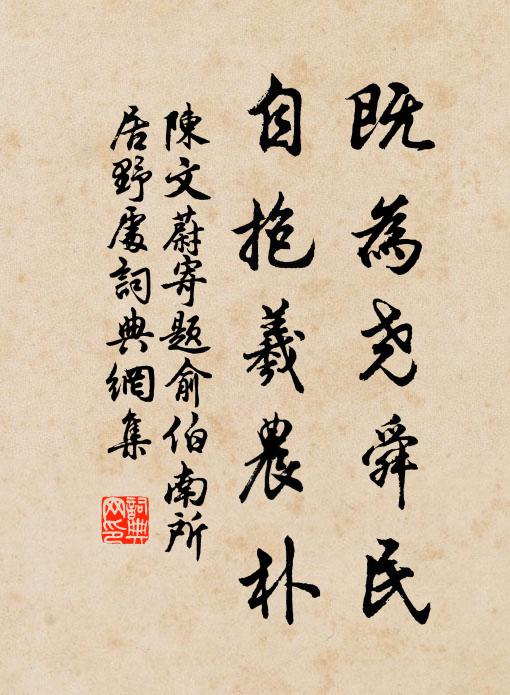 既為尧舜民
自抱羲農朴
陳文蔚寄題俞伯南所
居野處詞典網集
詞典
网印